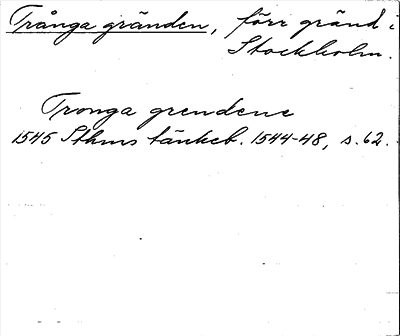 Trånga gränden, förr gränd i
Stockholm.
Tronga grendene
1545 Sthms tänkeb. 1544-48, s. 62.